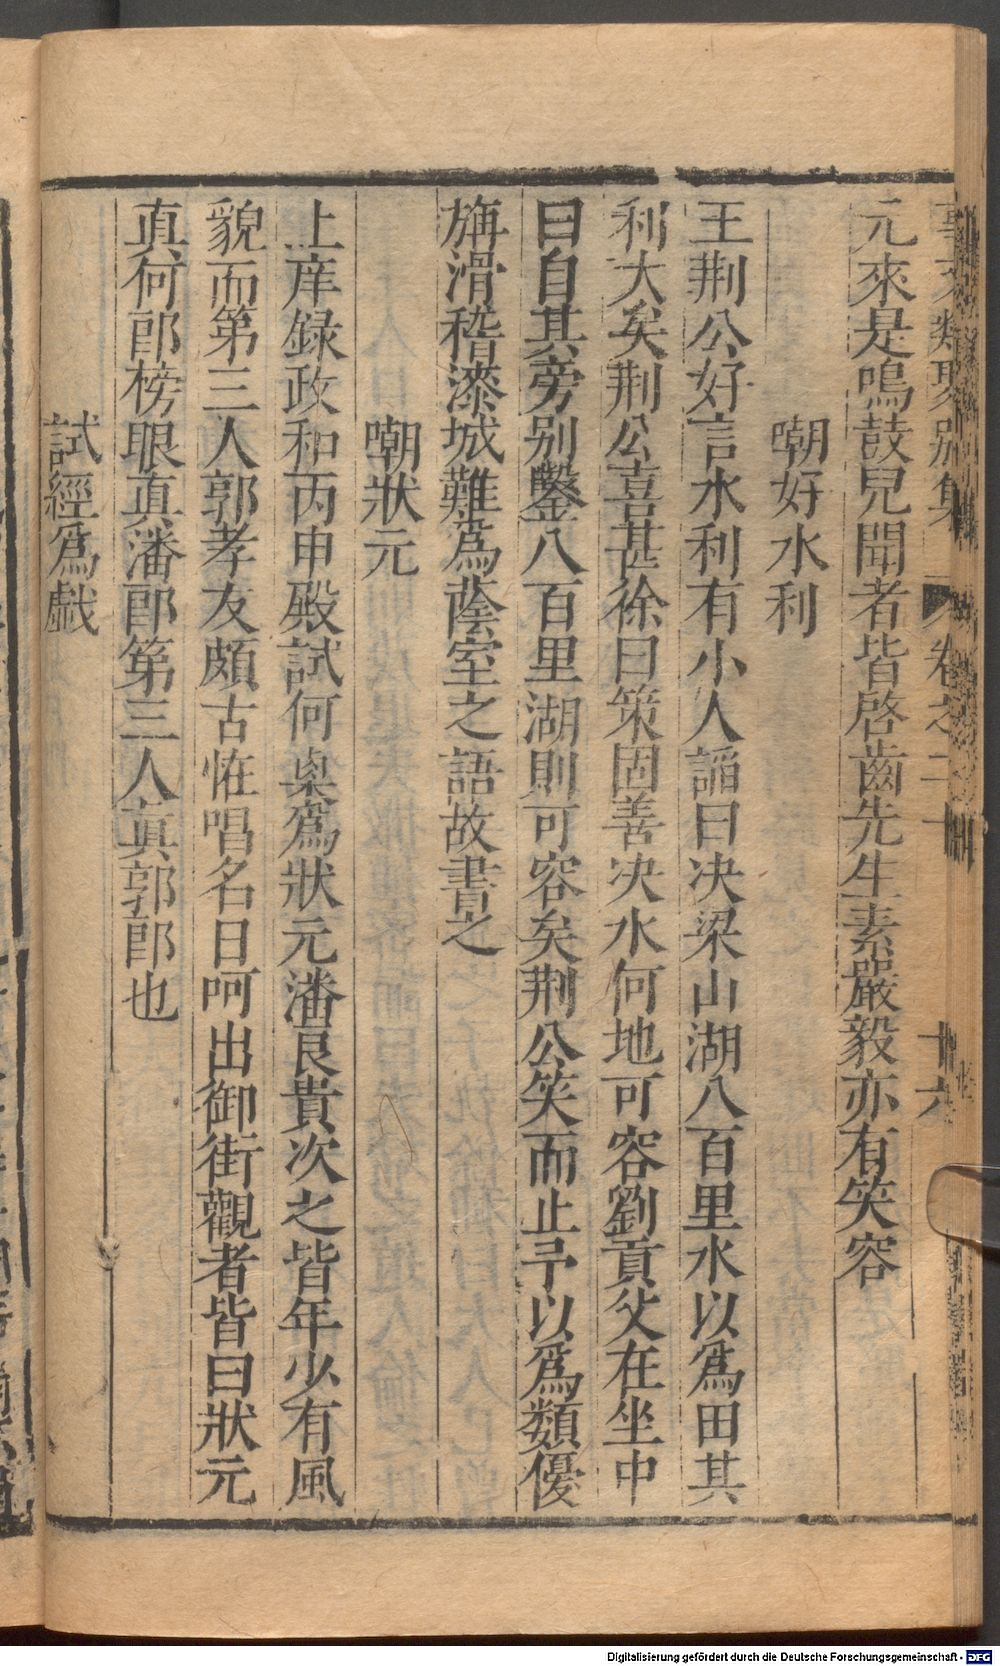 事文類聚別集 卷之二十 十六
元來是鳴鼓兒聞者皆啓齒先生素嚴毅亦有笑容
嘲好水利
王荆公好言水利有小人謟曰决梁山湖八百里水以爲田其
利大矣荆公喜甚徐曰策固善决水何地可容劉貢父在坐中
曰自其旁别鑿八百里湖則可容矣荆公笑而止予以爲類優
旃滑稽漆城難爲蔭室之語故書之
嘲狀元
上庠録政和丙申殿試何㮚爲狀元潘良貴次之皆年少有風
貌而第三人郭孝友頗古恠唱名日呵出御街觀者皆曰狀元
真何郎榜眼真潘郎第三人真郭郎也
試經爲戱
Digitalisierung gefördert durch die Deutsche Forschungsgemeinschaft - DFG